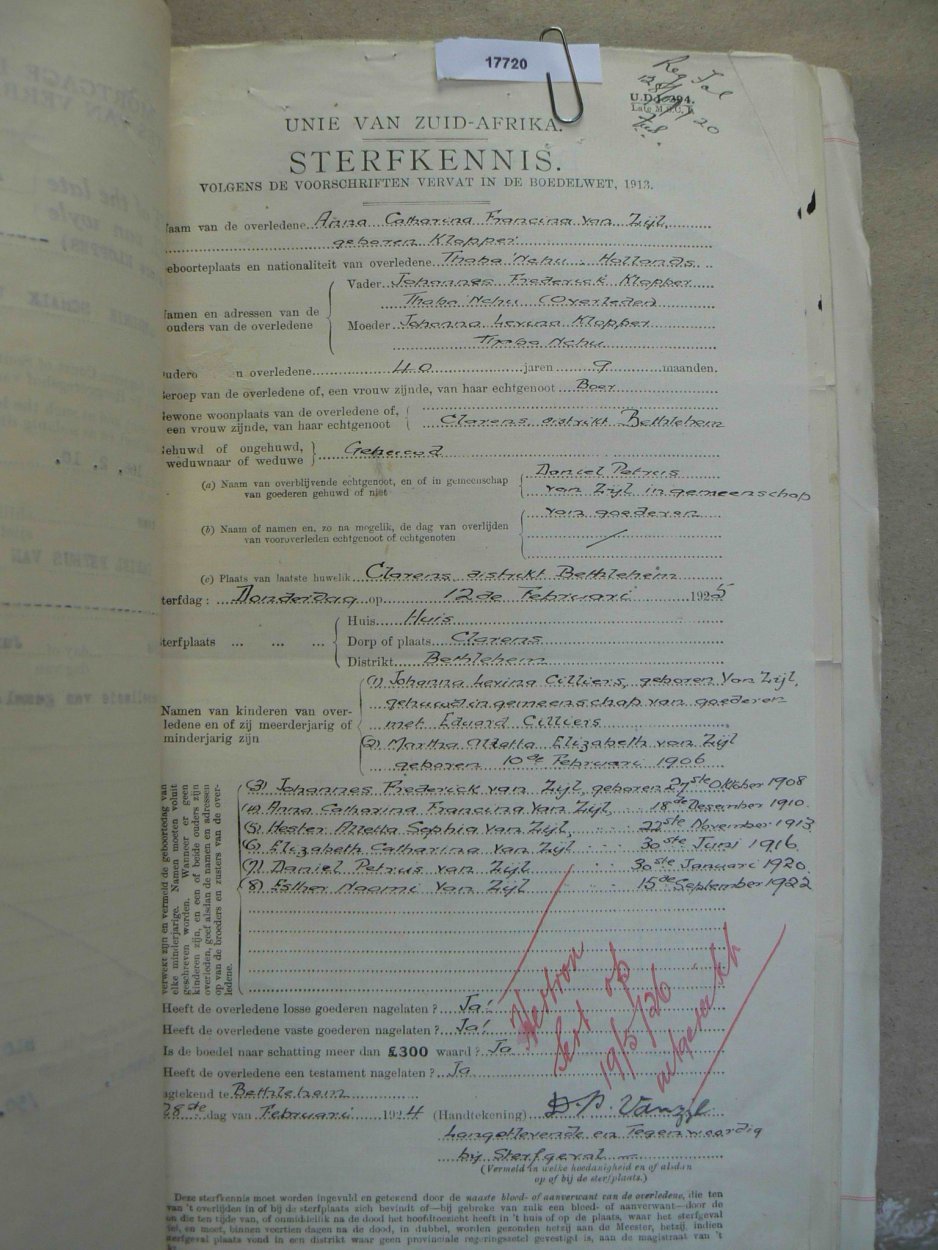 17720
Reg
U.D. 394.
UNIE VAN ZUID-AFRIKA.
STERFKENNIS.
VOLGENS DE VOORSCHRIFTEN VERVAT IN DE BOEDELWET, 1913.
aam van de overledene Anna Catharina Francina Van Zijl,
geboren Klopper
eboorteplaats en nationaliteit van overledene Thaba 'Nchu . Hollands
Vader Johannes Frederick Klopper
Thaba Nchu (Overleden)
Namen en adressen van de
ouders van de overledene
Moeder Johanna Levina Klopper
Thaba Nchu
n overledene 40 jaren 9 maanden.
eroep van de overledene of, een vrouw zijnde, van haar echtgenoot Boer
ewone woonplaats van de overledene of,
een vrouw zijnde, van haar echtgenoot
Clarens distrikt Bethlehem
ehuwd of ongehuwd,
weduwnaar of weduwe
Gehuwd
(a) Naam van overblijvende echtgenoot, en of in gemeenschap
van goederen gehuwd of niet
Daniel Petrus
van Zijl in gemeenschap
van goederen
(b) Naam of namen en, zo na mogelik, de dag van overlijden
van vooroverleden echtgenoot of echtgenoten
(c) Plaats van laatste huwelik Clarens, distrikt Bethlehem
terfdag: Donderdag op 12de Februari 1925
Huis Huis
terfplaats ... ... ... Dorp of plaats Clarens
Distrikt Bethlehem
(1) Johanna Levina Cilliers, geboren Van Zijl,
gehuwd in gemeenschap van goederen
met Eduard Cilliers
Namen van kinderen van over-
ledene en of zij meerderjarig of
minderjarig zijn
(2) Martha Aletta Elizabeth van Zijl
geboren 10de Februari 1906
(3) Johannes Frederick van Zijl, geboren 27ste Oktober 1908
(4) Anna Catharina Francina Van Zijl, 18de Desember 1910.
(5) Hester Aletta Sophia Van Zijl, 22ste November 1913
(6) Elizabeth Catharina Van Zijl 30ste Juni 1916
(7) Daniel Petrus van Zijl 30ste Januari 1920.
(8) Esther Naomi Van Zijl 15de September 1922
verwekt zijn en vermeld de geboortedag van
elke minderjarige. Namen moeten voluit
geschreven worden. Wanneer er geen
kinderen zijn, en een of beide ouders zijn
overleden, geef alsdan de namen en adressen
op van de broeders en zusters van de over-
ledene.
Heeft de overledene losse goederen nagelaten? Ja!
Heeft de overledene vaste goederen nagelaten? Ja!
Is de boedel naar schatting meer dan £300 waard? Ja
Heeft de overledene een testament nagelaten? Ja
op
19/5/26
agtekend te Bethlehem
28ste dag van Februari 1924 (Handtekening) D. P. Vanzyl
Langstlevende en Tegenwoordig
bij Sterfgeval
(Vermeld in welke hoedanigheid en of alsdan
op of bij de sterfplaats.)
Deze sterfkennis moet worden ingevuld en getekend door de naaste bloed- of aanverwant van de overledene, die ten
van 't overlijden in of bij de sterfplaats zich bevindt of—bij gebreke van zulk een bloed- of aanverwant—door de
on die ten tijde van, of onmiddellik na de dood het hoofdtoezicht heeft in 't huis of op de plaats, waar het sterfgeval
iel, en moet, binnen veertien dagen na de dood, in dubbel, worden gezonden hetzij aan de Meester, hetzij, indien
terfgeval plaats vond in een distrikt waar geen provinciale regeringszetel gevestigd is, aan de magistraat van 't